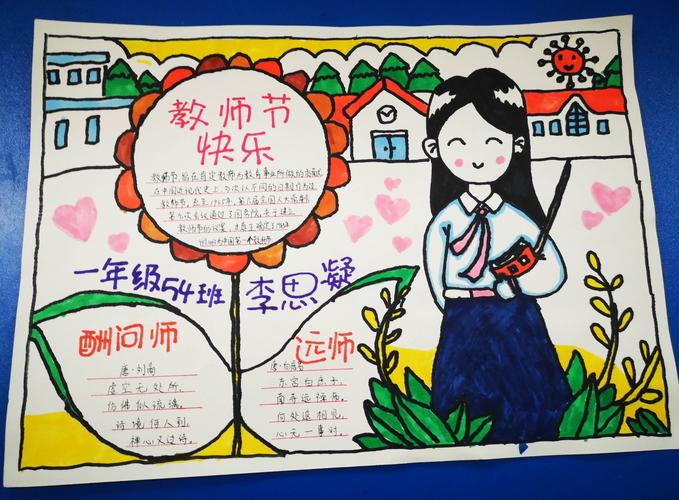 教师节
快乐
教师节,旨在肯定教师为教育事业所做的贡献
在中国近现代史上,多次以不同的日期作为过
教师节,直至1985年,第六届全国人大常委
第九次会议通过了国务院关于建立
教师节的议案,
一年级54班 李思凝
酬问师
唐·刘商
虚空无处所,
仿佛似琉璃。
诗境何人到,
禅心又过诗。
远师
唐·白居易
东宫白庶子,
南寺远禅师。
何处遥相见,
心无一事时。